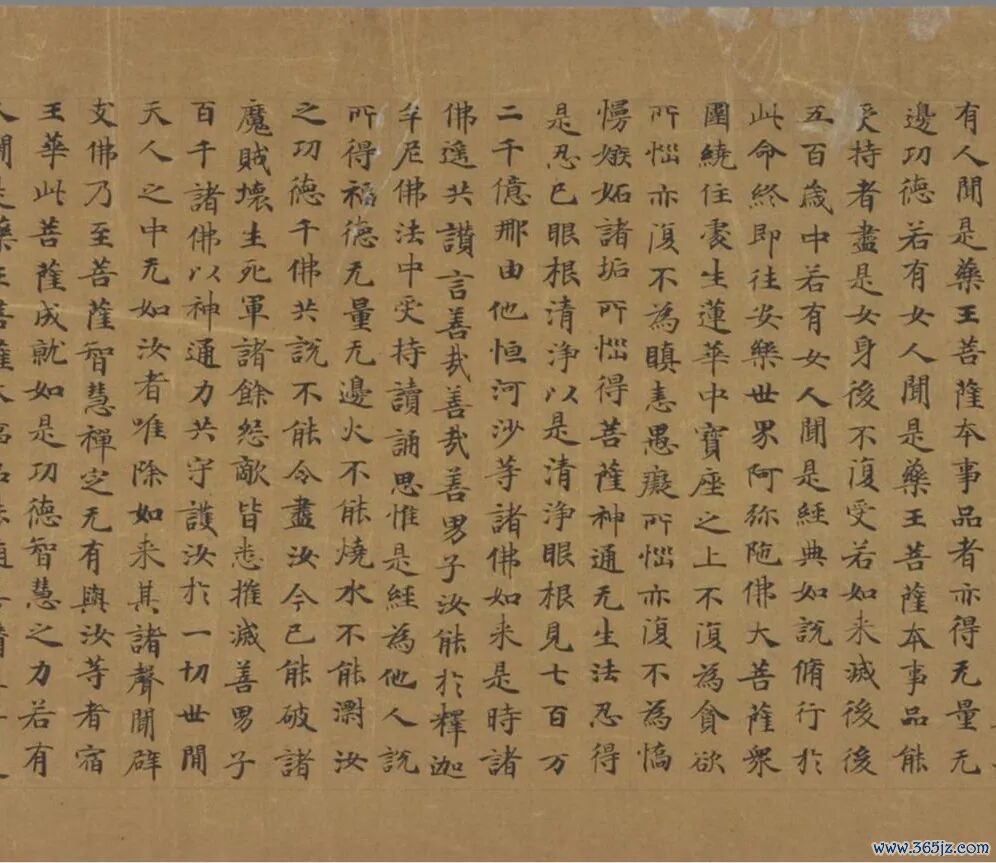 有人聞是藥王菩薩本事品者亦得无量无
邊功德若有女人聞是藥王菩薩本事品能
受持者盡是女身後不復受若如来滅後後
五百歲中若有女人聞是經典如說脩行於
此命終即往安樂世界阿弥陁佛大菩薩衆
圍繞住處生蓮華中寶座之上不復為貪欲
所惱亦復不為瞋恚愚癡所惱亦復不為憍
慢嫉妬諸垢所惱得菩薩神通无生法忍得
是忍已眼根清淨以是清淨眼根見七百万
二千億那由他恒河沙等諸佛如来是時諸
佛遥共讃言善哉善哉善男子汝能於釋迦
牟尼佛法中受持讀誦思惟是經為他人說
所得福德无量无邊火不能燒水不能漂汝
之功德千佛共說不能令盡汝今已能破諸
魔賊壞生死軍諸餘怨敵皆悉摧滅善男子
百千諸佛以神通力共守護汝於一切世間
天人之中无如汝者唯除如来其諸聲聞辟
支佛乃至菩薩智慧禪定无有與汝等者宿
王華此菩薩成就如是功德智慧之力若有
www.365jz.com